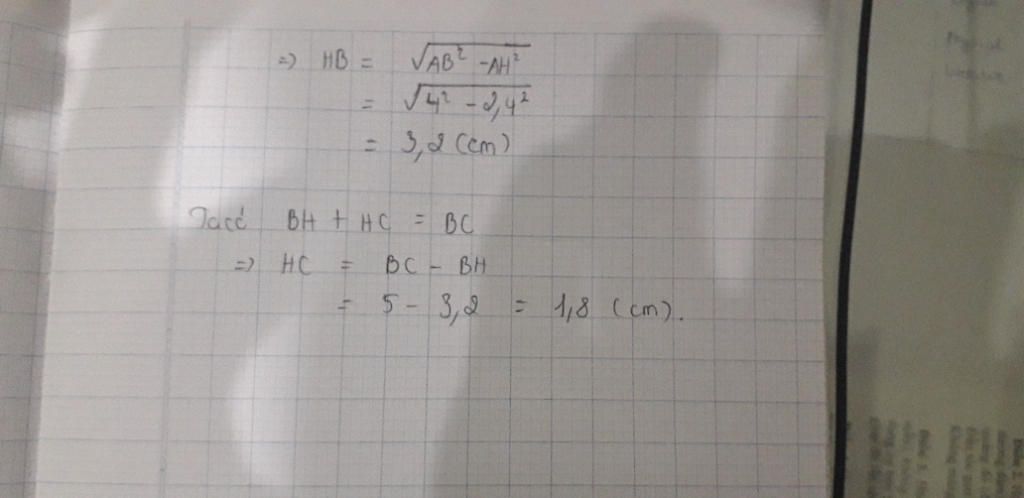 => HB = √AB² - AH²
= √4² - 2,4²
= 3,2 (cm)
Ta có BH + HC = BC
=> HC = BC - BH
= 5 - 3,2 = 1,8 (cm).